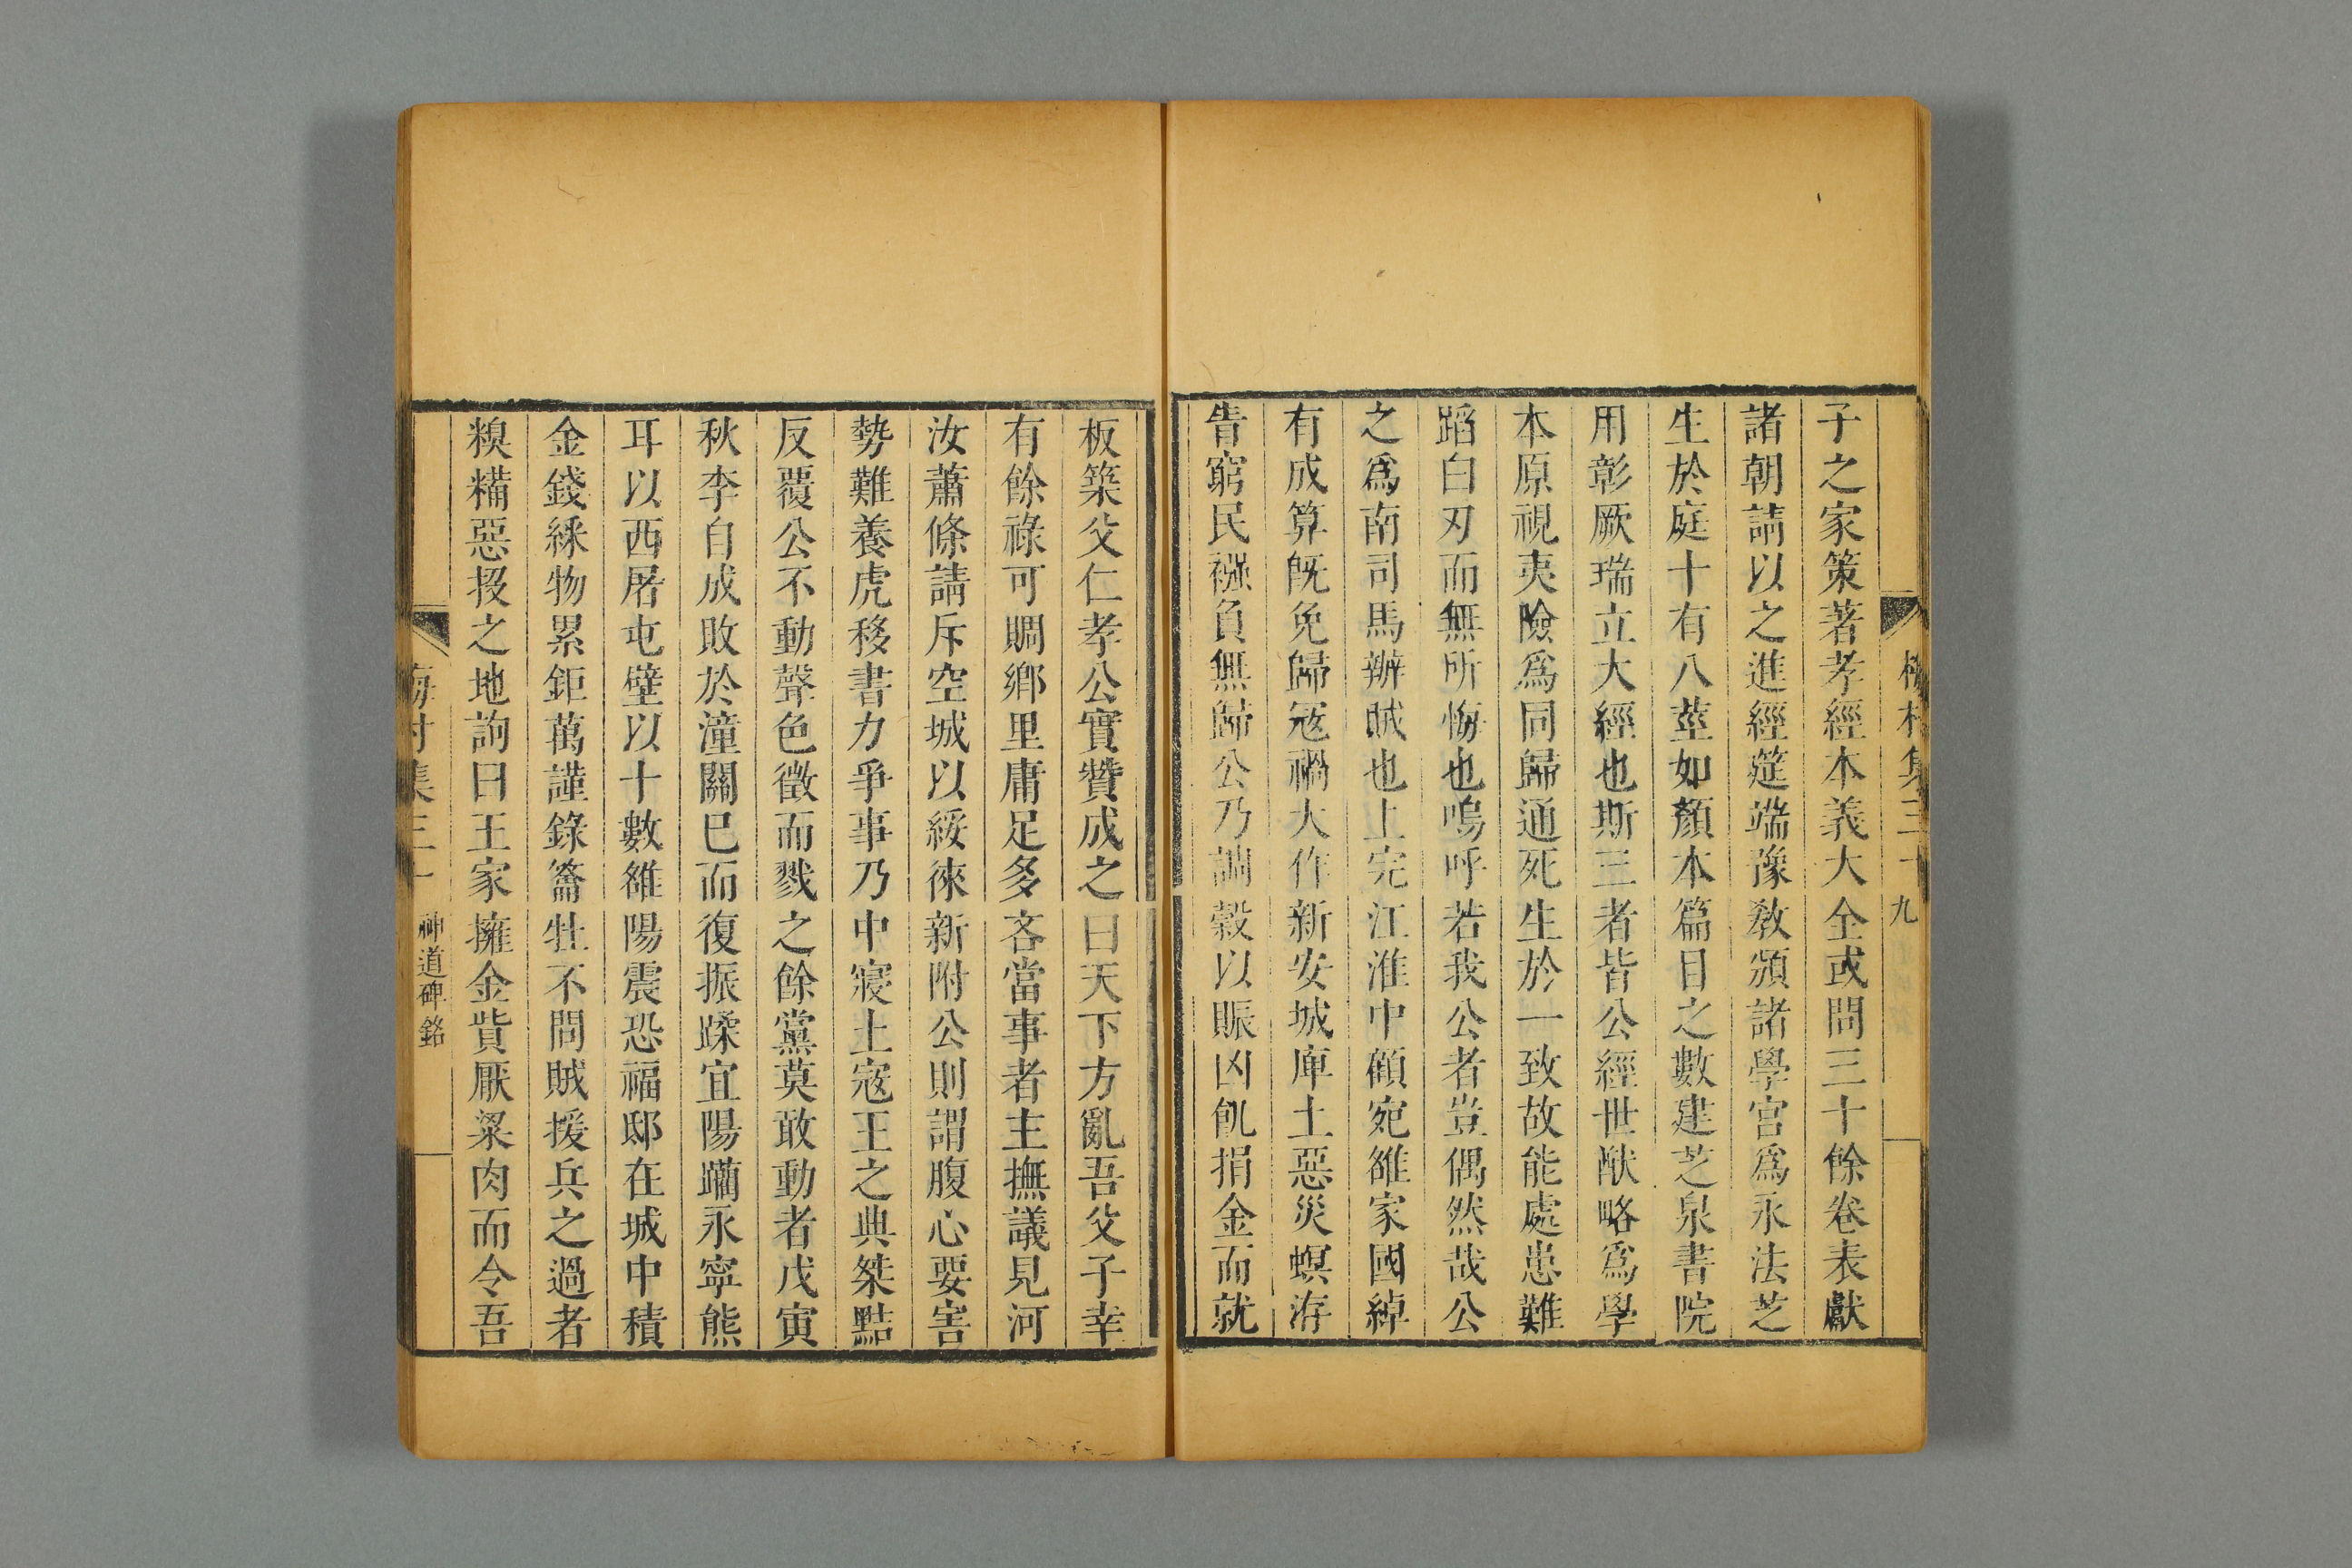 梅村集三十 九
子之家策著孝經本義大全或問三十餘卷表獻
諸朝請以之進經筵端豫教頒諸學宮爲永法芝
生於庭十有八莖如顏本篇目之數建芝泉書院
用彰厥瑞立大經也斯三者皆公經世猷略爲學
本原視夷險爲同歸通死生於一致故能處患難
蹈白刃而無所悔也嗚呼若我公者豈偶然哉公
之爲南司馬辦賊也上完江淮中顧宛雒家國綽
有成算旣免歸寇禍大作新安城庳土惡災螟洊
告窮民襁負無歸公乃調穀以賑凶飢捐金而就
板築父仁孝公實贊成之曰天下方亂吾父子幸
有餘祿可賙鄉里庸足多吝當事者主撫議見河
汝蕭條請斥空城以綏徠新附公則謂腹心要害
勢難養虎移書力爭事乃中寢土寇王之典桀黠
反覆公不動聲色徵而戮之餘黨莫敢動者戊寅
秋李自成敗於潼關已而復振蹂宜陽躪永寧熊
耳以西屠屯壁以十數雒陽震恐福邸在城中積
金錢綵物累鉅萬謹錄籥牡不問賊援兵之過者
糗糒惡投之地詢曰王家擁金貲厭粱肉而令吾
梅村集三十 神道碑銘